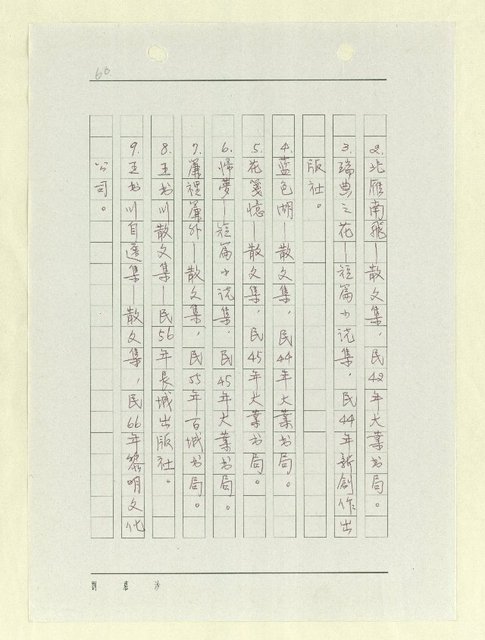 68
2.北雁南飛—散文集，民42年大業书局。
3.瑞典之花—短篇小说集，民44年新創作出
版社。
4.蓝色湖—散文集，民44年大業书局。
5.花箋憶—散文集，民45年大業书局。
6.归夢—短篇小说集，民45年大業书局。
7.簾裡簾外—散文集，民55年百城书局。
8.王书川散文集—民56年長城出版社。
9.王书川自選集—散文集，民66年黎明文化
公司。
劉慕沙